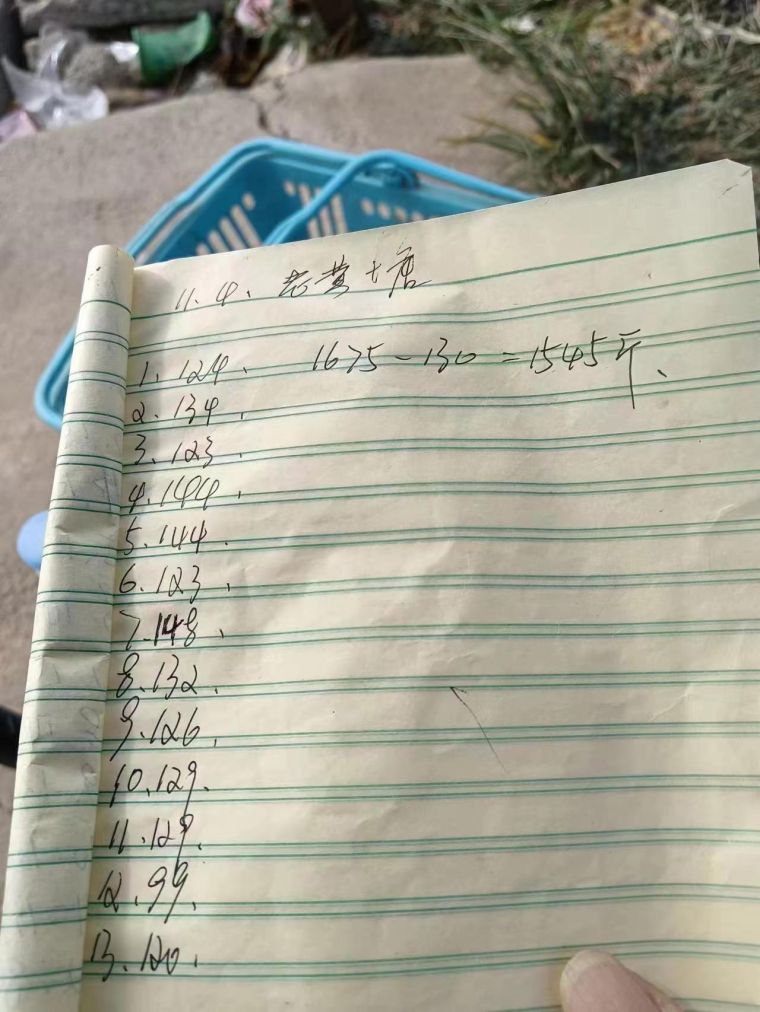 11.4. 老黄塘
1.124. 1675-130=1545斤、
2.134.
3.123.
4.144.
5.144.
6.123.
7.148.
8.132.
9.126.
10.129.
11.129.
12.99.
13.120.